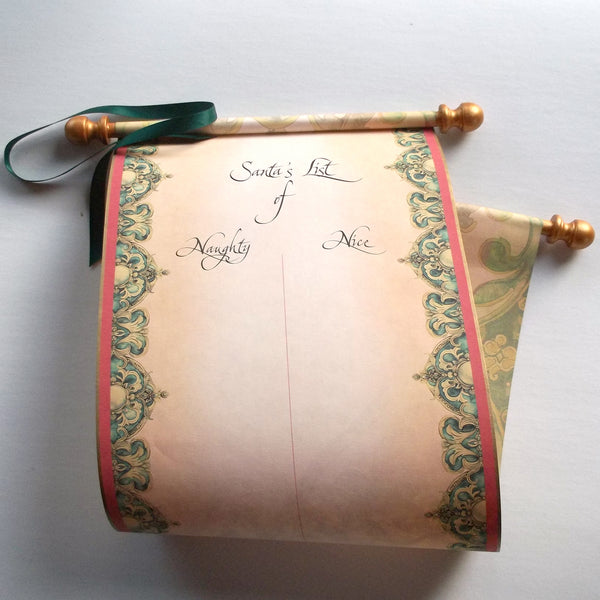 Santa's List
of
Naughty Nice